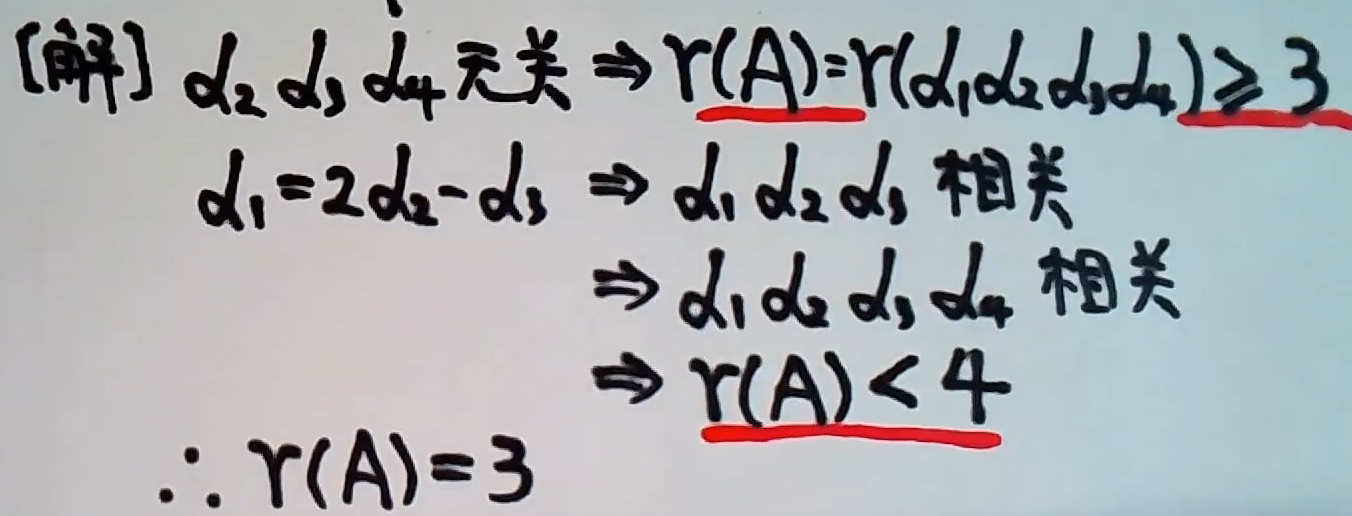 [解] α₂ α₃ α₄ 无关 ⇒ r(A)=r(α₁α₂α₃α₄)≥3
α₁=2α₂-α₃ ⇒ α₁ α₂ α₃ 相关
⇒ α₁ α₂ α₃ α₄ 相关
⇒ r(A)<4
∴ r(A)=3